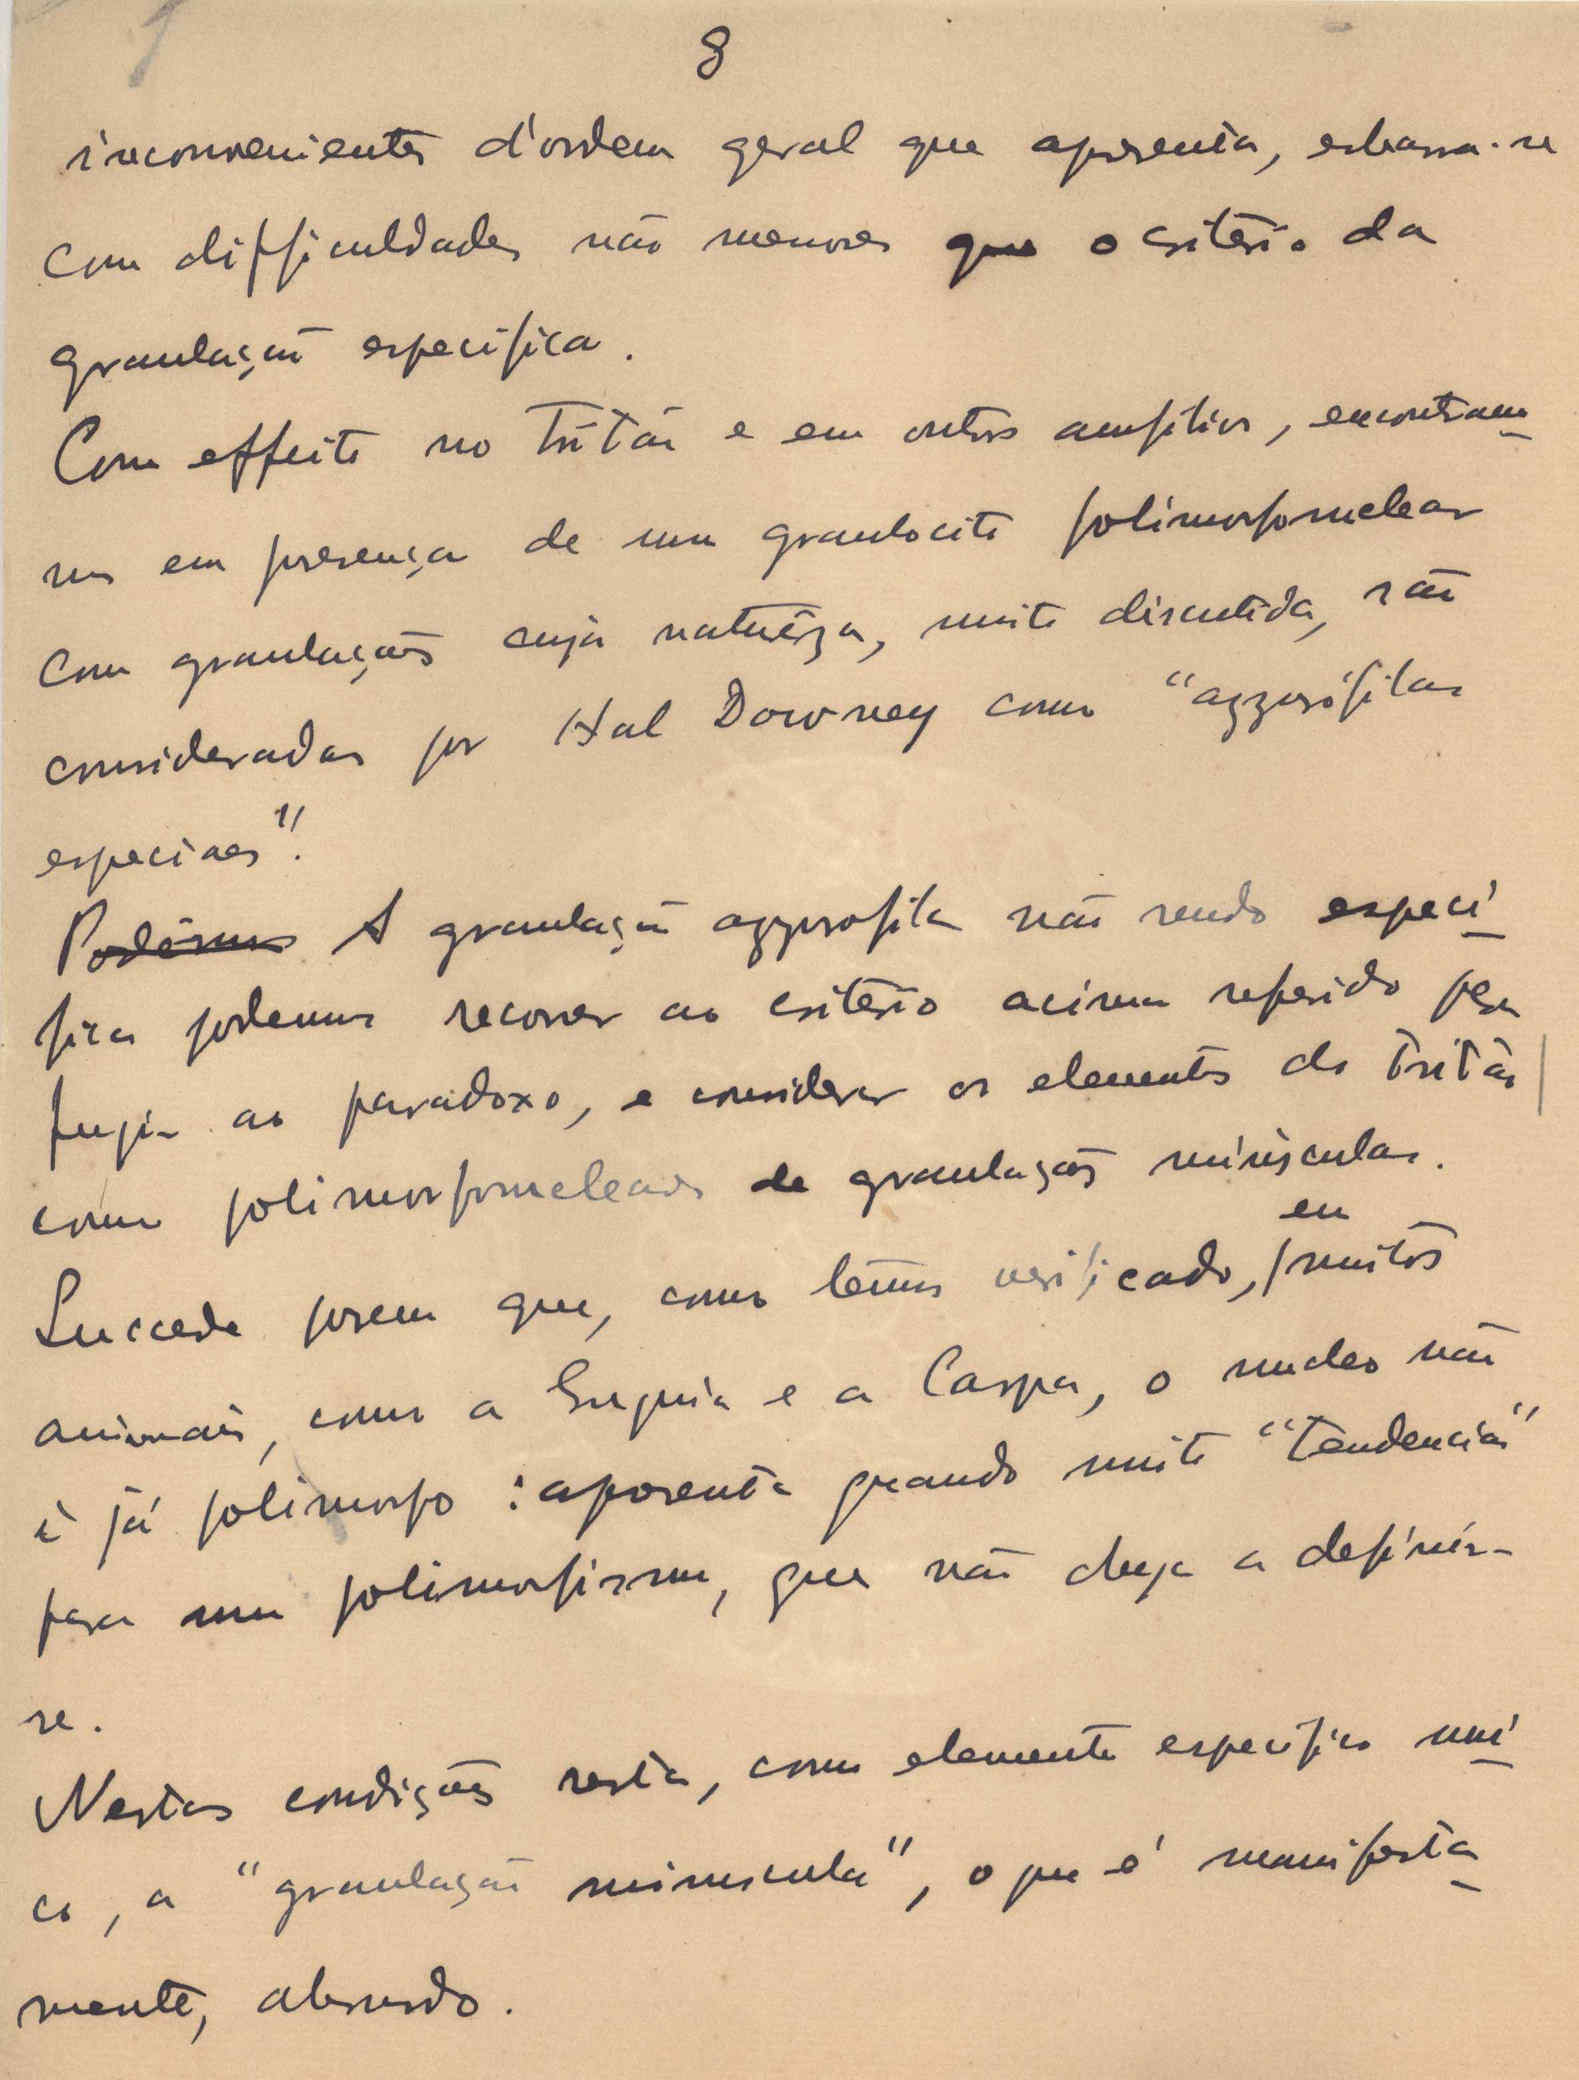 8
inconvenientes d'ordem geral que apresenta, esbarra-se
com difficuldades não menores que o critério da
granulação especifica.
Com effeito no Tritão e em outros anfibios, encontramo-
nos em presença de um granulocito polimorfonuclear
com granulações cuja naturêza, muito discutida, são
consideradas por Hal Downey como "azzurófilas
especiaes".
Podêmos A granulação azzurofila não sendo especi-
fica podemos recorrer ao critério acima referido para
fugir ao paradoxo, e considerar os elementos do Tritão
como polimorfonucleares de granulações minúsculas.
Succede porem que, como têmos verificado, em muitos
animais, como a Enguia e a Carpa, o nucleo não
é já polimorfo: apresenta quando muito "tendencias"
para um polimorfismo, que não chega a definir-
se.
Nestas condições resta, como elemento especifico uni-
co, a "granulação minuscula", o que é manifesta-
mente, absurdo.